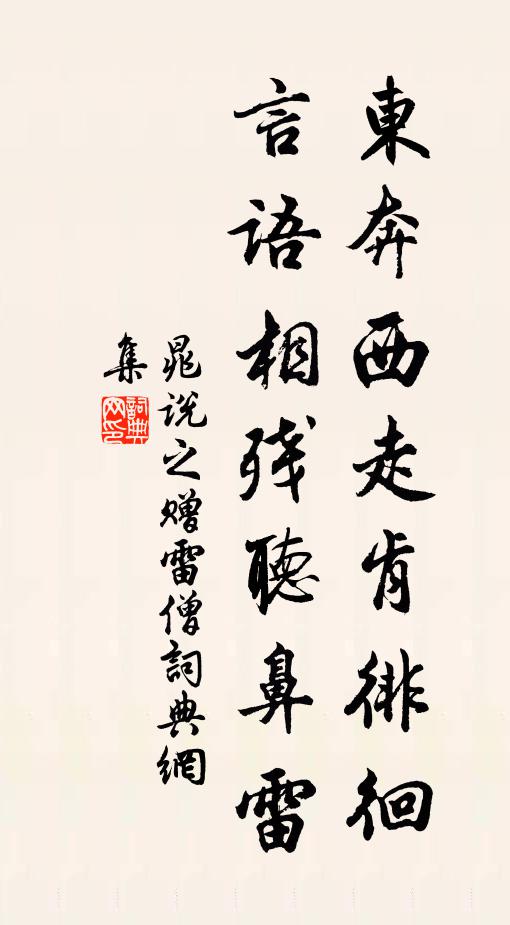 東奔西走肯徘徊
言語相残聽鼻雷
晁说之赠雷僧詞典網
集
詞典网印